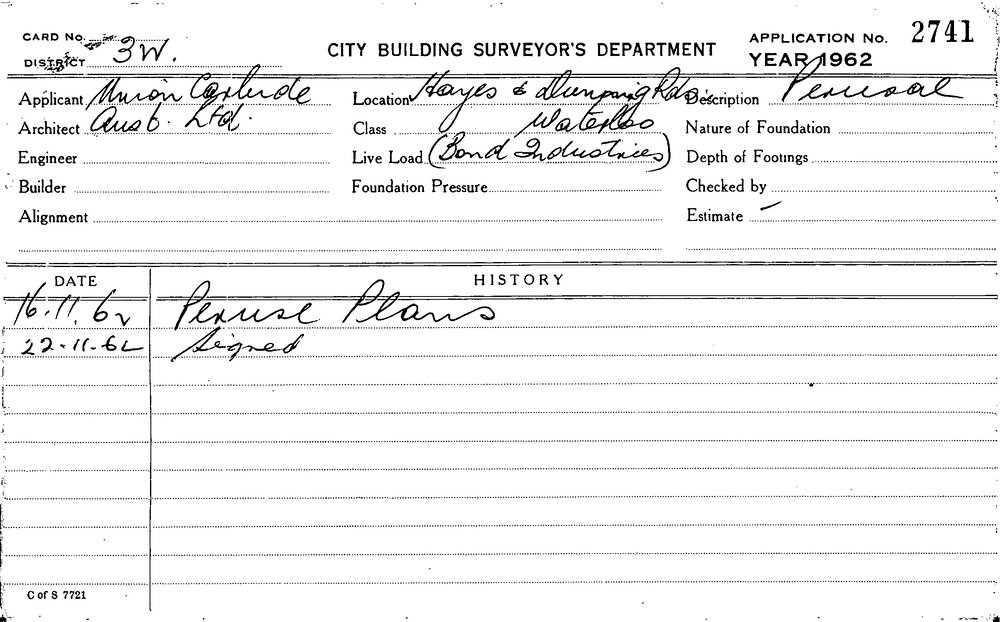 CARD No.
DISTRICT 3W.
CITY BUILDING SURVEYOR'S DEPARTMENT
APPLICATION No. 2741
YEAR 1962
Applicant Union Carbide
Location Hayes & Dunning Rds.
Description Perusal
Architect Aust. Ltd.
Class Waterloo
Nature of Foundation
Engineer
Live Load (Bond Industries)
Depth of Footings
Builder
Foundation Pressure
Checked by
Alignment
Estimate —
DATE HISTORY
16.11.62 Peruse Plans
22-11-62 Signed
C of S 7721